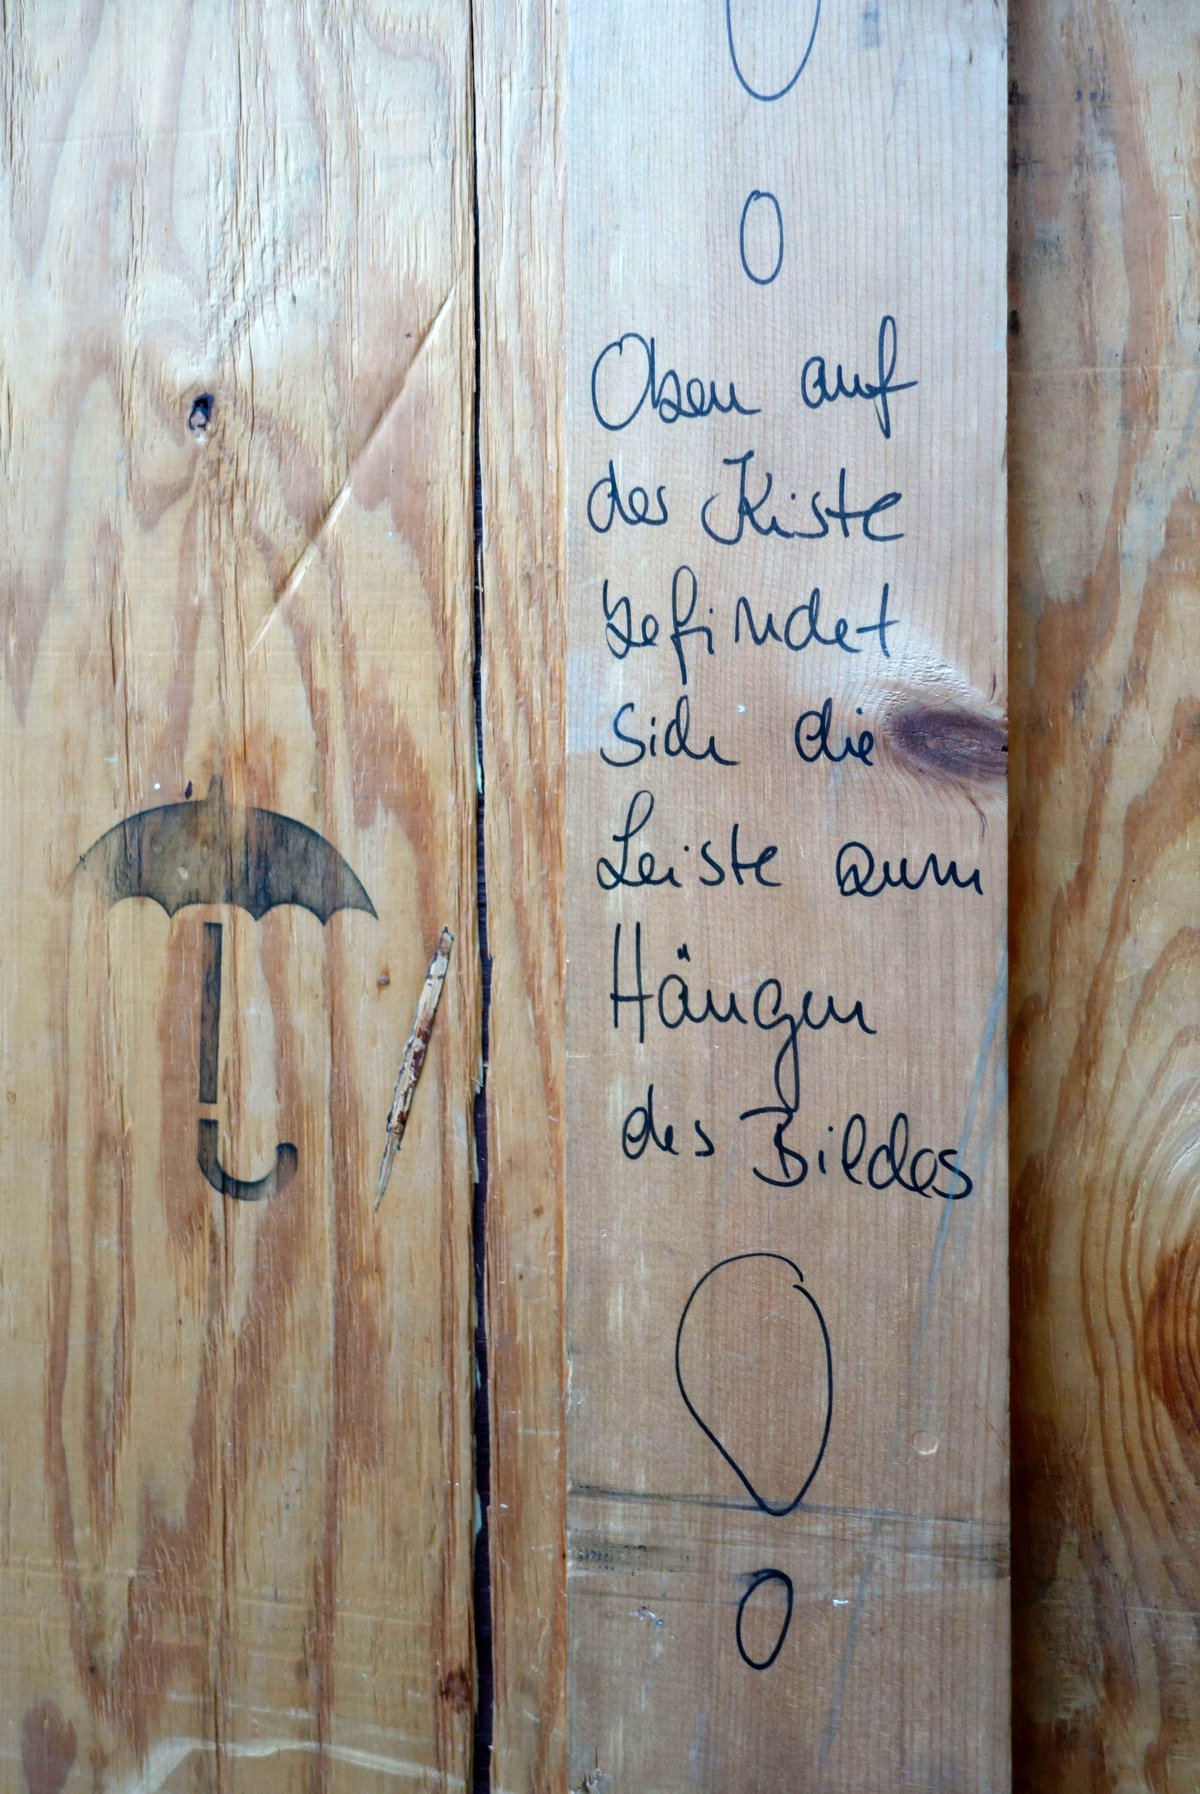 Oben auf
der Kiste
befindet
sich die
Leiste zum
Hängen
des Bildes